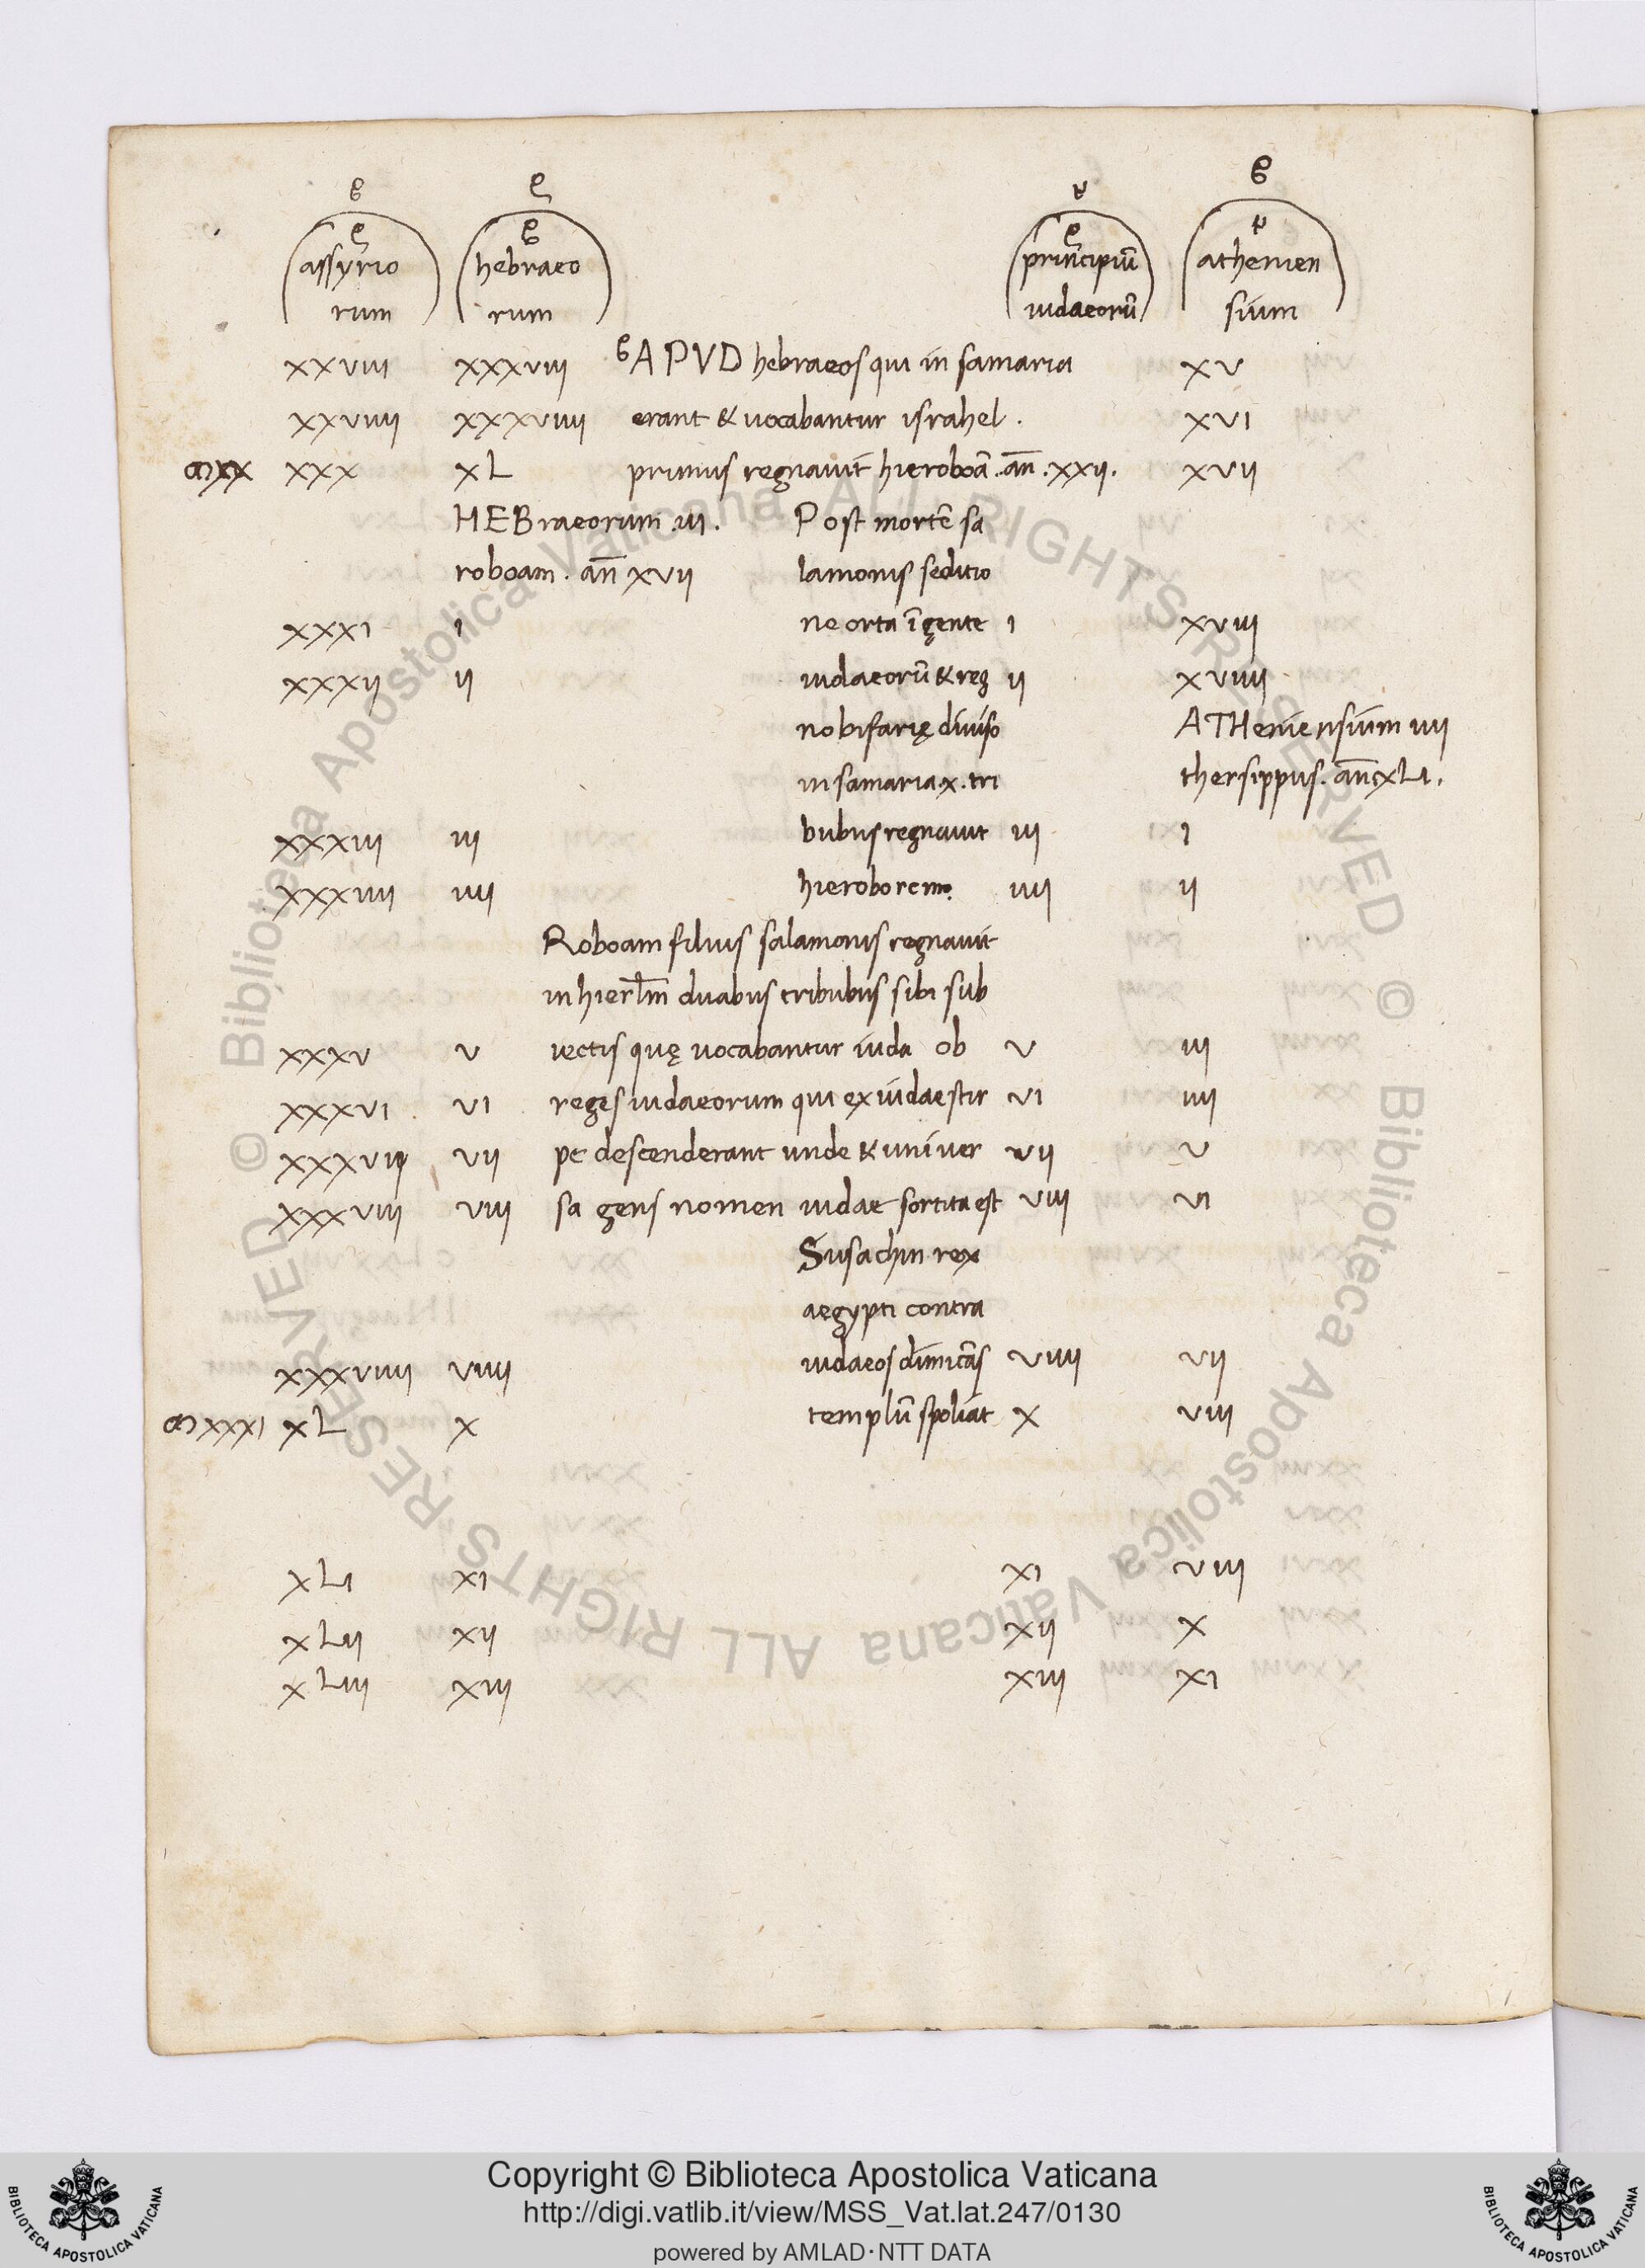 assyrio hebraeo principiũ athenien
rum rum iudaeorũ sium
xxviii xxxviii APVD hebraeos qui in samaria xv
xxviiii xxxviiii erant & uocabantur israhel . xvi
xxx xL primus regnauit hieroboã . añ . xxii. xvii
HEBraeorum .iii. Post mortẽ sa
roboam . añ xvii lamonis seditio
xxxi i ne orta ĩ gente i xviii
xxxii ii iudaeorũ & reg ii xviiii
no bifarię diuiso ATHeniensium iiii
in samaria .x. tri thersippus. añ xLi.
xxxiii iii bubus regnauit iii i
xxxiiii iiii hieroborem. iiii ii
Roboam filius salamonis regnauit
in hierlm̃ duabus tribubus sibi sub
xxxv v iectis quę uocabantur iuda ob v iii
xxxvi vi reges iudaeorum qui ex iudae stir vi iiii
xxxvii vii pe descenderant unde & uniuer vii v
xxxviii viii sa gens nomen iudae sortita est viii vi
Susachin rex
aegypti contra
xxxviiii viiii iudaeos dimicãs viiii vii
xxxi xL x templũ spoliat x viii
xLi xi xi viiii
xLii xii xii x
xLiii xiii xiii xi
© Biblioteca Apostolica Vaticana ALL RIGHTS RESERVED © Biblioteca Apostolica Vaticana ALL RIGHTS RESERVED
Copyright © Biblioteca Apostolica Vaticana
http://digi.vatlib.it/view/MSS_Vat.lat.247/0130
powered by AMLAD·NTT DATA
BIBLIOTECA APOSTOLICA VATICANA
BIBLIOTECA APOSTOLICA VATICANA